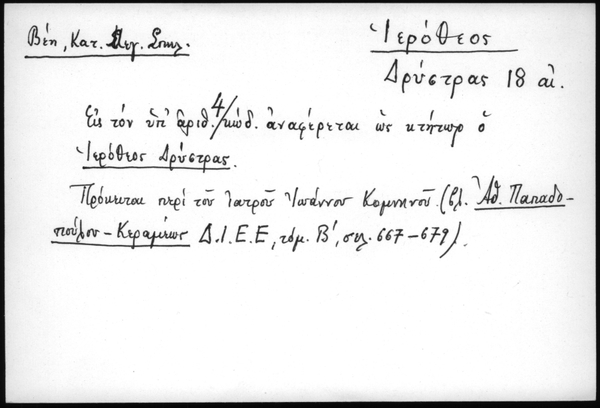 Βέη, Κατ. Μεγ. Σπηλ.
Ἱερόθεος
Δρύστρας 18 αἰ.
Εἰς τόν ὑπ' ἀριθ. 4/κώδ. ἀναφέρεται ὡς κτήτωρ ὁ
Ἱερόθεος Δρύστρας.
Πρόκειται περί τοῦ ἰατροῦ Ἰωάννου Κομνηνοῦ. (βλ. Ἀθ. Παπαδο-
πούλου-Κεραμέως Δ.Ι.Ε.Ε, τόμ. Β', σελ. 667-679).